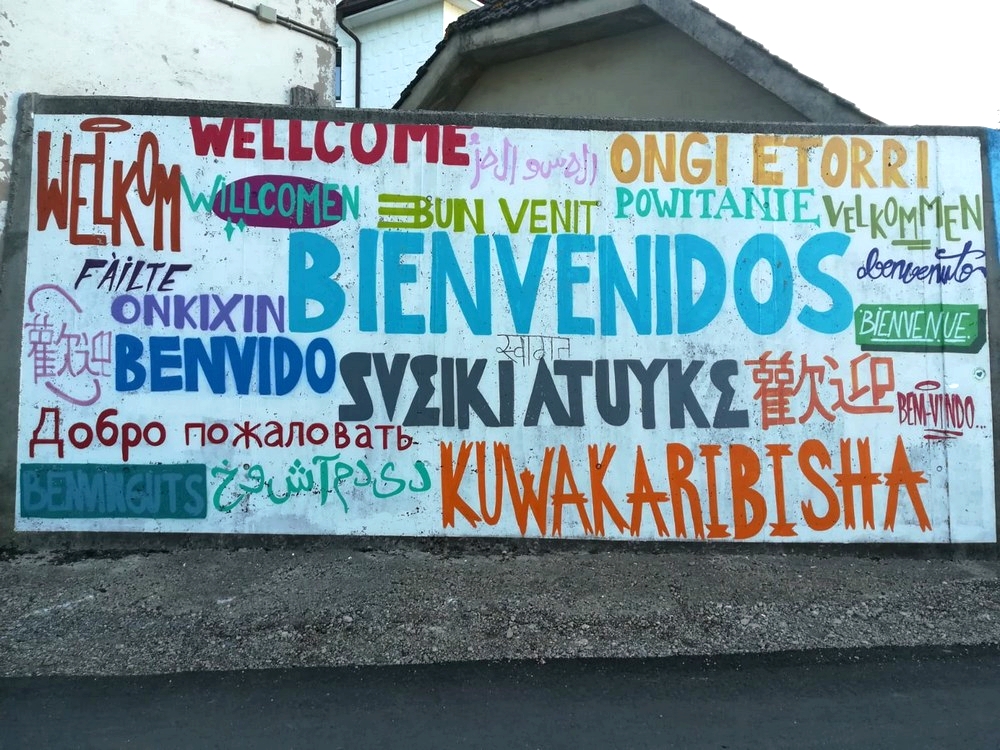 WELKOM
WELLCOME
ONGI ETORRI
WILLCOMEN
BUN VENIT
POWITANIE
VELKOMMEN
BIENVENIDOS
FÀILTE
benvenuto
ONKIXIN
BIENVENUE.
歡迎
BENVIDO
स्वागत
SVEIKI ATUYKE
歡迎
BEM-VINDO...
Добро пожаловать
BENVINGUTS
KUWAKARIBISHA